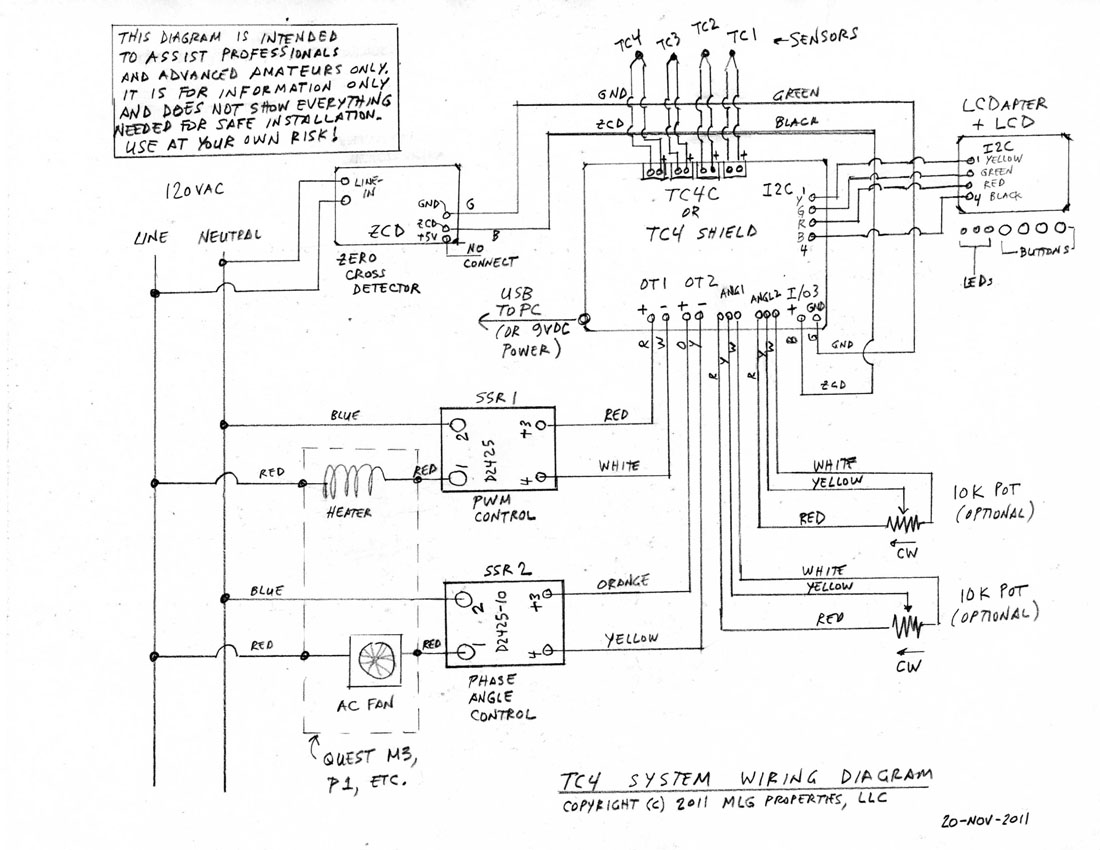 THIS DIAGRAM IS INTENDED
TO ASSIST PROFESSIONALS
AND ADVANCED AMATEURS ONLY.
IT IS FOR INFORMATION ONLY
AND DOES NOT SHOW EVERYTHING
NEEDED FOR SAFE INSTALLATION.
USE AT YOUR OWN RISK!
TC4 TC3 TC2 TC1 ← SENSORS
GND GREEN
ZCD BLACK
+ + + +
LCDAPTER
+ LCD
I2C
1 YELLOW
GREEN
RED
4 BLACK
LEDs
BUTTONS
120VAC
LINE NEUTRAL
LINE-
IN
GND G
ZCD B
+5V
ZCD
NO
CONNECT
ZERO
CROSS
DETECTOR
TC4C
OR
TC4 SHIELD
I2C
1
Y
G
R
B
4
USB
TO PC
(OR 9VDC
POWER)
OT1 OT2 ANG1 ANGL2 I/O3
+ - + - + GND
R W O Y R Y W R Y W B G
GND
ZCD
SSR 1
BLUE
2 +3
RED
D2425
RED
HEATER
RED
1 4
WHITE
PWM
CONTROL
WHITE
YELLOW
RED
10K POT
(OPTIONAL)
CW
SSR 2
BLUE
2 +3
ORANGE
D2425-10
RED
AC FAN
RED
1 4
YELLOW
PHASE
ANGLE
CONTROL
WHITE
YELLOW
RED
10K POT
(OPTIONAL)
CW
QUEST M3,
P1, ETC.
TC4 SYSTEM WIRING DIAGRAM
COPYRIGHT (C) 2011 MLG PROPERTIES, LLC
20-NOV-2011